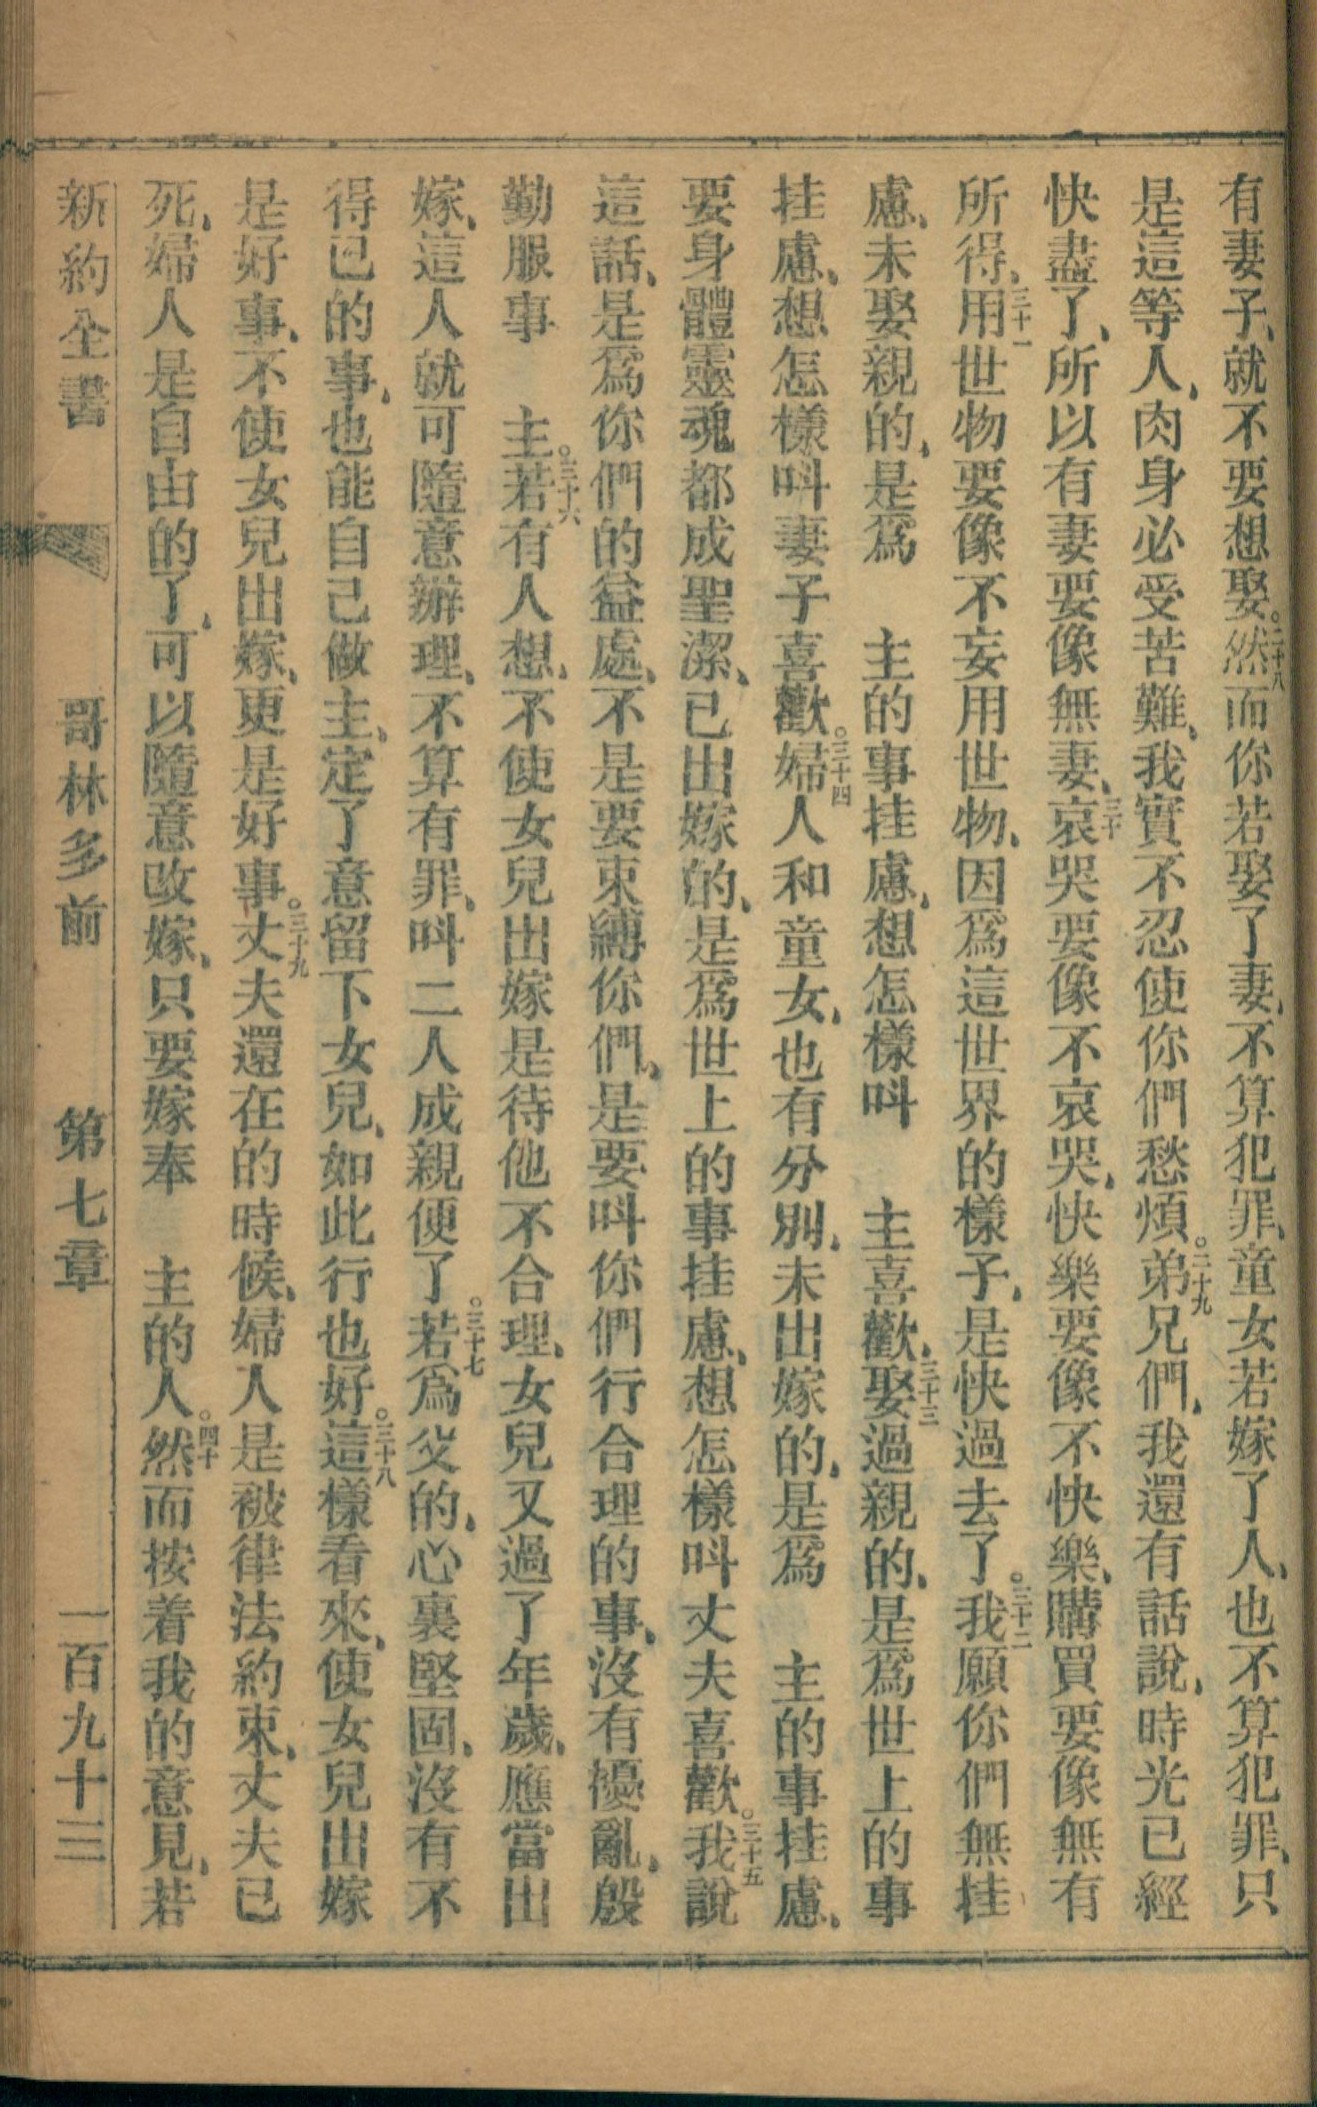 有妻子、就不要想娶。二十八然而你若娶了妻、不算犯罪、童女若嫁了人、也不算犯罪、只
是這等人、肉身必受苦難、我實不忍使你們愁煩。二十九弟兄們、我還有話說、時光已經
快盡了、所以有妻要像無妻、三十哀哭要像不哀哭、快樂要像不快樂、購買要像無有
所得、三十一用世物要像不妄用世物、因爲這世界的樣子、是快過去了。三十二我願你們無挂
慮、未娶親的、是爲 主的事挂慮、想怎樣呌 主喜歡、三十三娶過親的、是爲世上的事
挂慮、想怎樣呌妻子喜歡。三十四婦人和童女、也有分別、未出嫁的、是爲 主的事挂慮、
要身體靈魂都成聖潔、已出嫁的、是爲世上的事挂慮、想怎樣呌丈夫喜歡。三十五我說
這話、是爲你們的益處、不是要束縛你們、是要呌你們行合理的事、沒有擾亂、殷
勤服事 主。三十六若有人想、不使女兒出嫁是待他不合理、女兒又過了年歲、應當出
嫁、這人就可隨意辦理、不算有罪、呌二人成親便了。三十七若爲父的、心裏堅固、沒有不
得已的事、也能自己做主、定了意留下女兒、如此行也好。三十八這樣看來、使女兒出嫁
是好事、不使女兒出嫁、更是好事。三十九丈夫還在的時候、婦人是被律法約束、丈夫已
死、婦人是自由的了、可以隨意改嫁、只要嫁奉 主的人。四十然而按着我的意見、若
新約全書 哥林多前 第七章 一百九十三